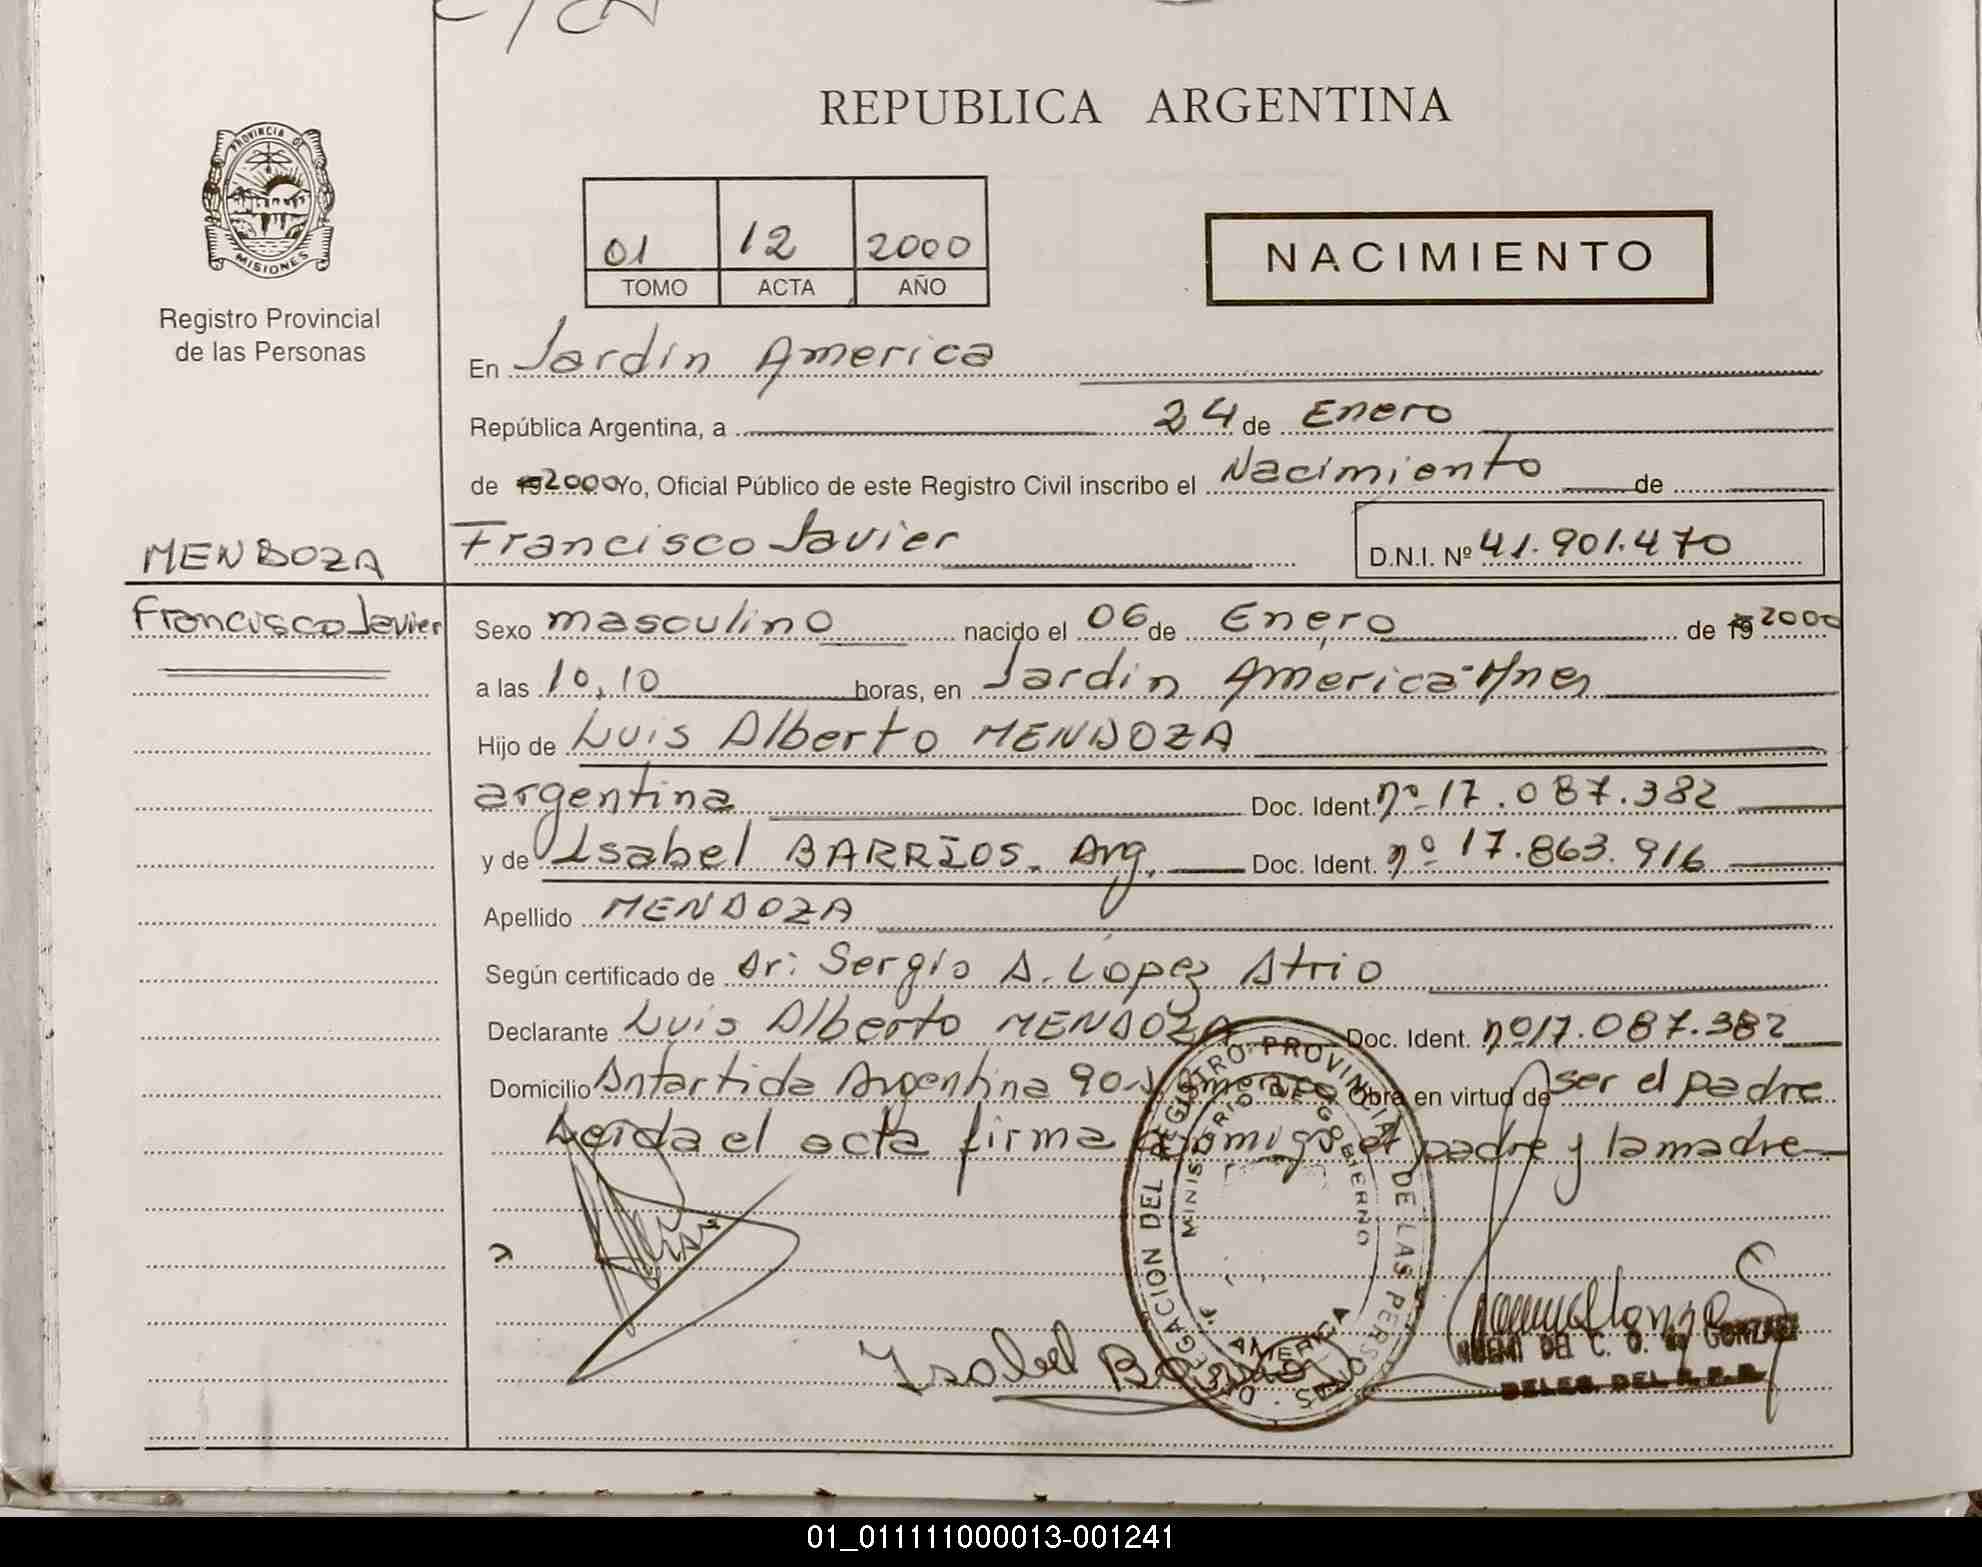 REPUBLICA ARGENTINA
PROVINCIA DE
MISIONES
Registro Provincial
de las Personas
01 12 2000
TOMO ACTA AÑO
NACIMIENTO
En Jardin America
República Argentina, a 24 de Enero
de 19 2000 Yo, Oficial Público de este Registro Civil inscribo el Nacimiento de
MENDOZA
Francisco Javier D.N.I. Nº 41.901.470
Francisco Javier
Sexo masculino nacido el 06 de Enero de 19 2000
a las 10,10 horas, en Jardin America-Mnes
Hijo de Luis Alberto MENDOZA
argentina Doc. Ident. nº 17.087.382
y de Isabel BARRIOS. Arg. Doc. Ident. nº 17.863.916
Apellido MENDOZA
Según certificado de Dr: Sergio A. Lopez Atrio
Declarante Luis Alberto MENDOZA Doc. Ident. nº 17.087.382
Domicilio Antartida Argentina 90 America Obra en virtud de ser el padre
Leida el acta firma comigo el padre y la madre
DELEGACION DEL REGISTRO PROVINCIAL DE LAS PERSONAS
MINISTERIO DE GOBIERNO
AMERICA
Isabel Barrios
NOEMI DEL C. O. de GONZALEZ
DELEG. DEL R. P. P.
01_011111000013-001241